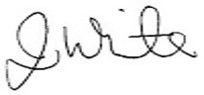 J. White